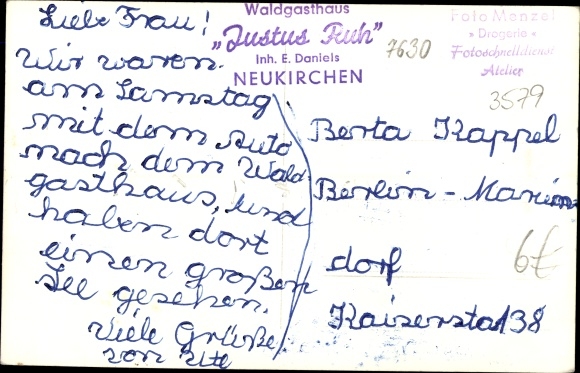 Liebe Frau!
Wir waren
am Samstag
mit dem Auto
nach dem Wald-
gasthaus, und
haben dort
einen großen
See gesehen.
Viele Grüße
von Ute
Waldgasthaus
„Justus Ruh"
Inh. E. Daniels
NEUKIRCHEN
7630
Foto Menzel
» Drogerie «
Fotoschnelldienst
Atelier
3579
Berta Kappel
Berlin - Marien-
dorf
6€
Kaiserstr 138